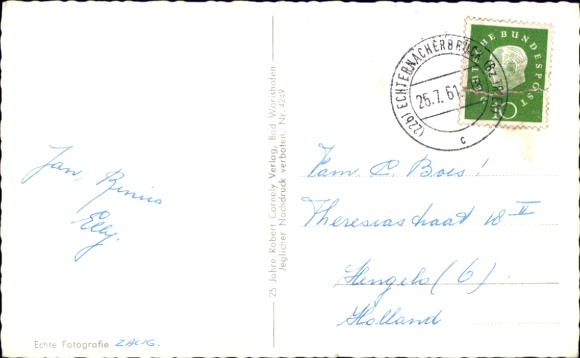 Jan, Rinus
Elly.
Echte Fotografie
25 Jahre Robert Cornely Verlag, Bad Wörishofen
Jeglicher Nachdruck verboten. Nr. 4249
DEUTSCHE BUNDESPOST
(22b) ECHTERNACHERBRÜCK
25.7.61
c
Fam. C. Boes!
Theresiastraat 18 II
Hengelo (O).
Holland